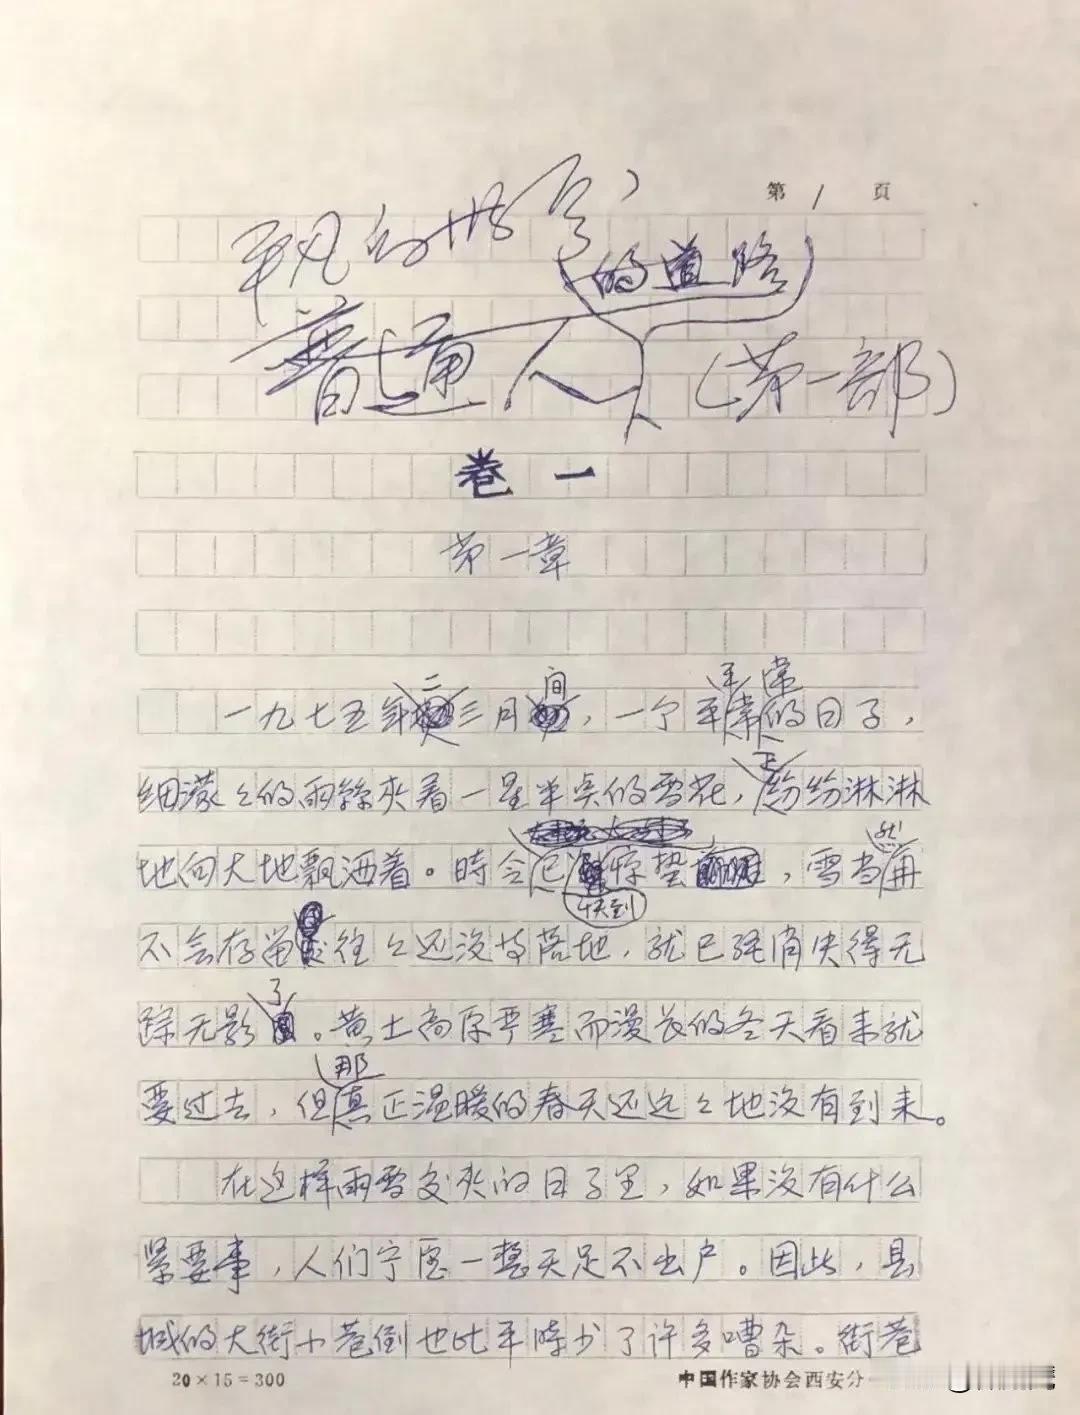 第1頁
平凡的世界
的道路
普通人(第一部)
卷一
第一章
二 间 平常
一九七五年三月,一个平常的日子,
正
细濛々的雨絲夹着一星半点的雪花,纷纷淋淋
然
地向大地飘洒着。時令已惊蛰,雪当再
快到
不会存留往々还没等落地,就已经消失得无
了
踪无影。黄土高原严寒而漫长的冬天看来就
那
要过去,但真正温暖的春天还远々地没有到来。
在这样雨雪交夹的日子里,如果没有什么
紧要事,人们宁愿一整天足不出户。因此,县
城的大街小巷倒也比平時少了许多嘈杂。街巷
20×15=300
中国作家协会西安分